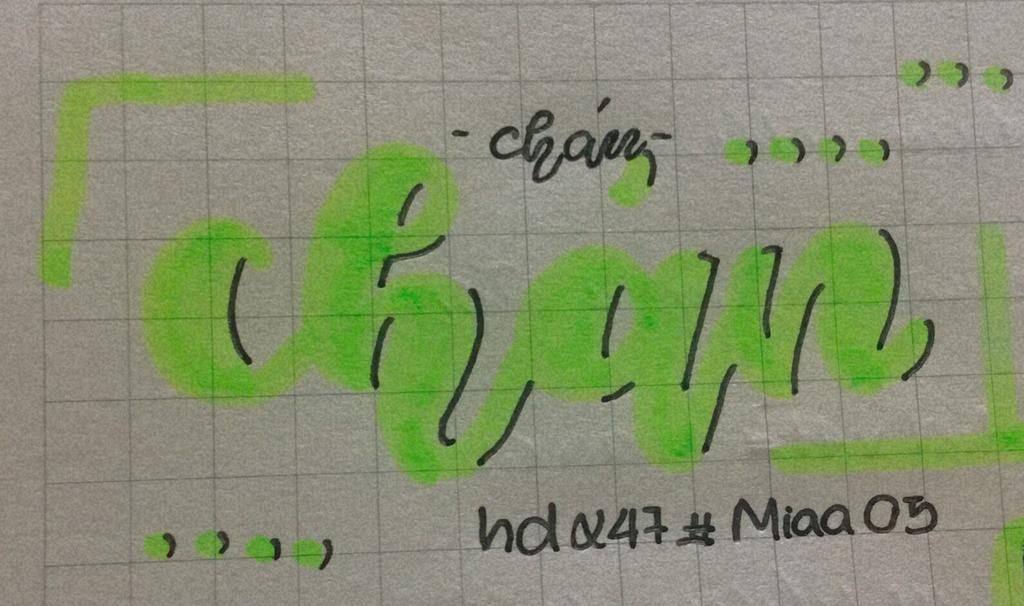 - chán -
chan
hdα47#Miaa05